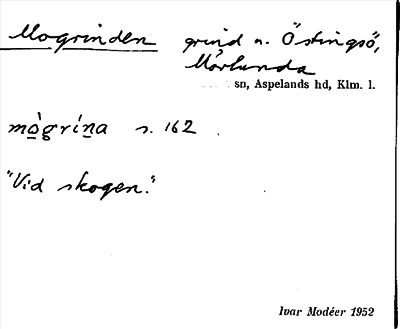 Mogrinden grind n. Östingsö,
Mörlunda
sn, Aspelands hd, Klm. l.
mo̱̍grín̲a s. 162
"Vid skogen."
Ivar Modéer 1952